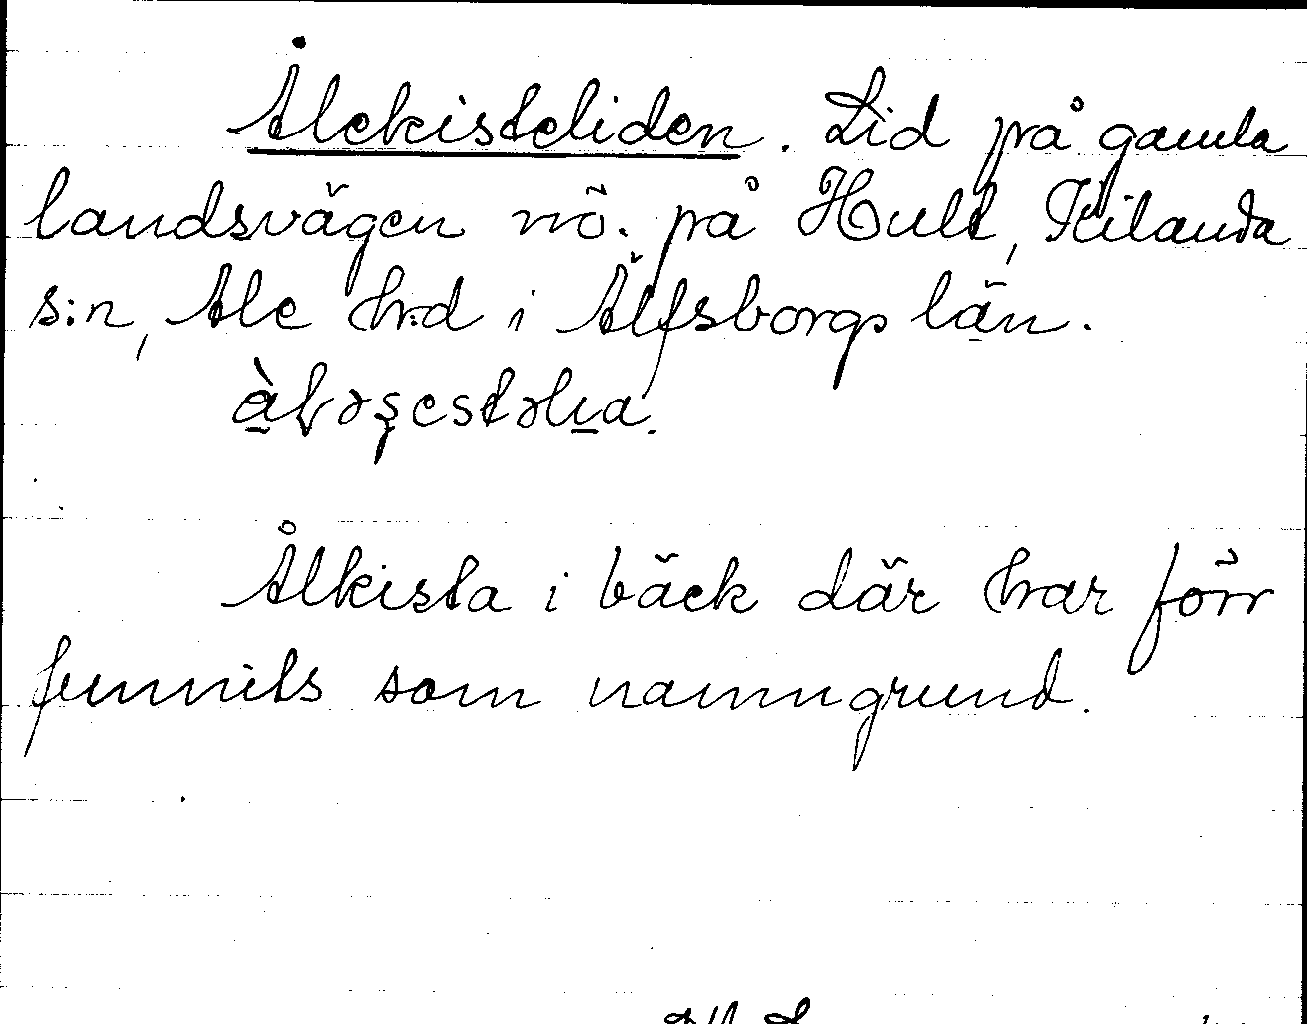 Ålekisteliden. Lid på gamla
landsvägen nö. på Hult, Kilanda
s:n, Ale hrd i Älfsborgs län.
Ålkista i bäck där har förr
funnits som namngrund.